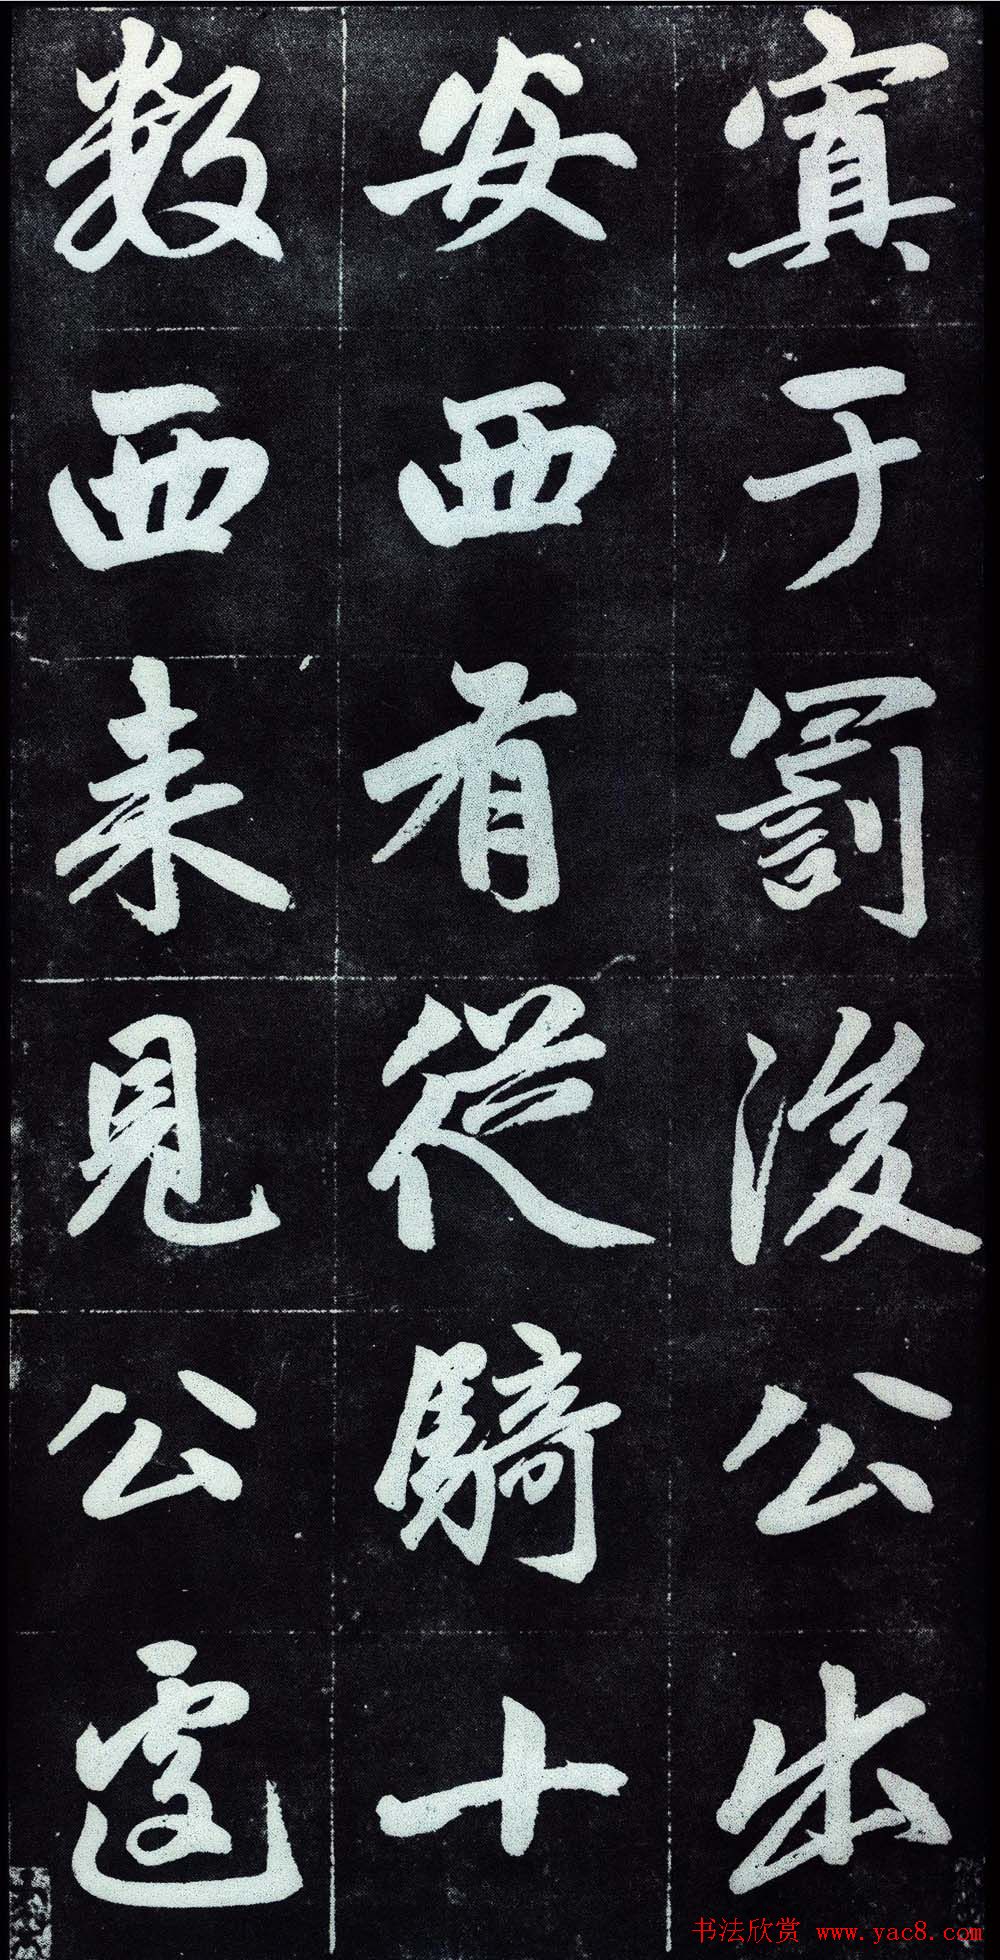 寘于罰後公出
安西有從騎十
數西来見公遽
书法欣赏 www.yac8.com